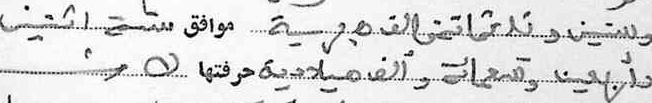 وستين وثلاثمائة والف هجرية موافق سنة اثنين
وأربعين وتسعمائة وألف ميلادية حرفتها